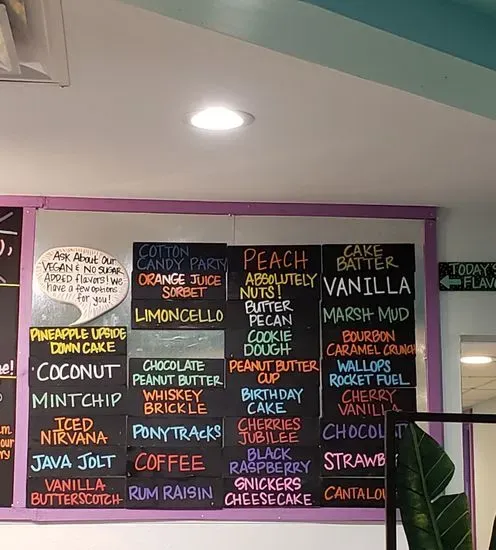 Ask About Our
VEGAN & NO SUGAR
ADDED flavors! We
have a few options
for you!
PINEAPPLE UPSIDE
DOWN CAKE
COCONUT
MINT CHIP
ICED
NIRVANA
JAVA JOLT
VANILLA
BUTTERSCOTCH
COTTON
CANDY PARTY
ORANGE JUICE
SORBET
LIMONCELLO
CHOCOLATE
PEANUT BUTTER
WHISKEY
BRICKLE
PONYTRACKS
COFFEE
RUM RAISIN
PEACH
ABSOLUTELY
NUTS!
BUTTER
PECAN
COOKIE
DOUGH
PEANUT BUTTER
CUP
BIRTHDAY
CAKE
CHERRIES
JUBILEE
BLACK
RASPBERRY
SNICKERS
CHEESECAKE
CAKE
BATTER
VANILLA
MARSH MUD
BOURBON
CARAMEL CRUNCH
WALLOPS
ROCKET FUEL
CHERRY
VANILLA
CHOCOLAT
STRAWB
CANTALOU
TODAY'S
FLAV